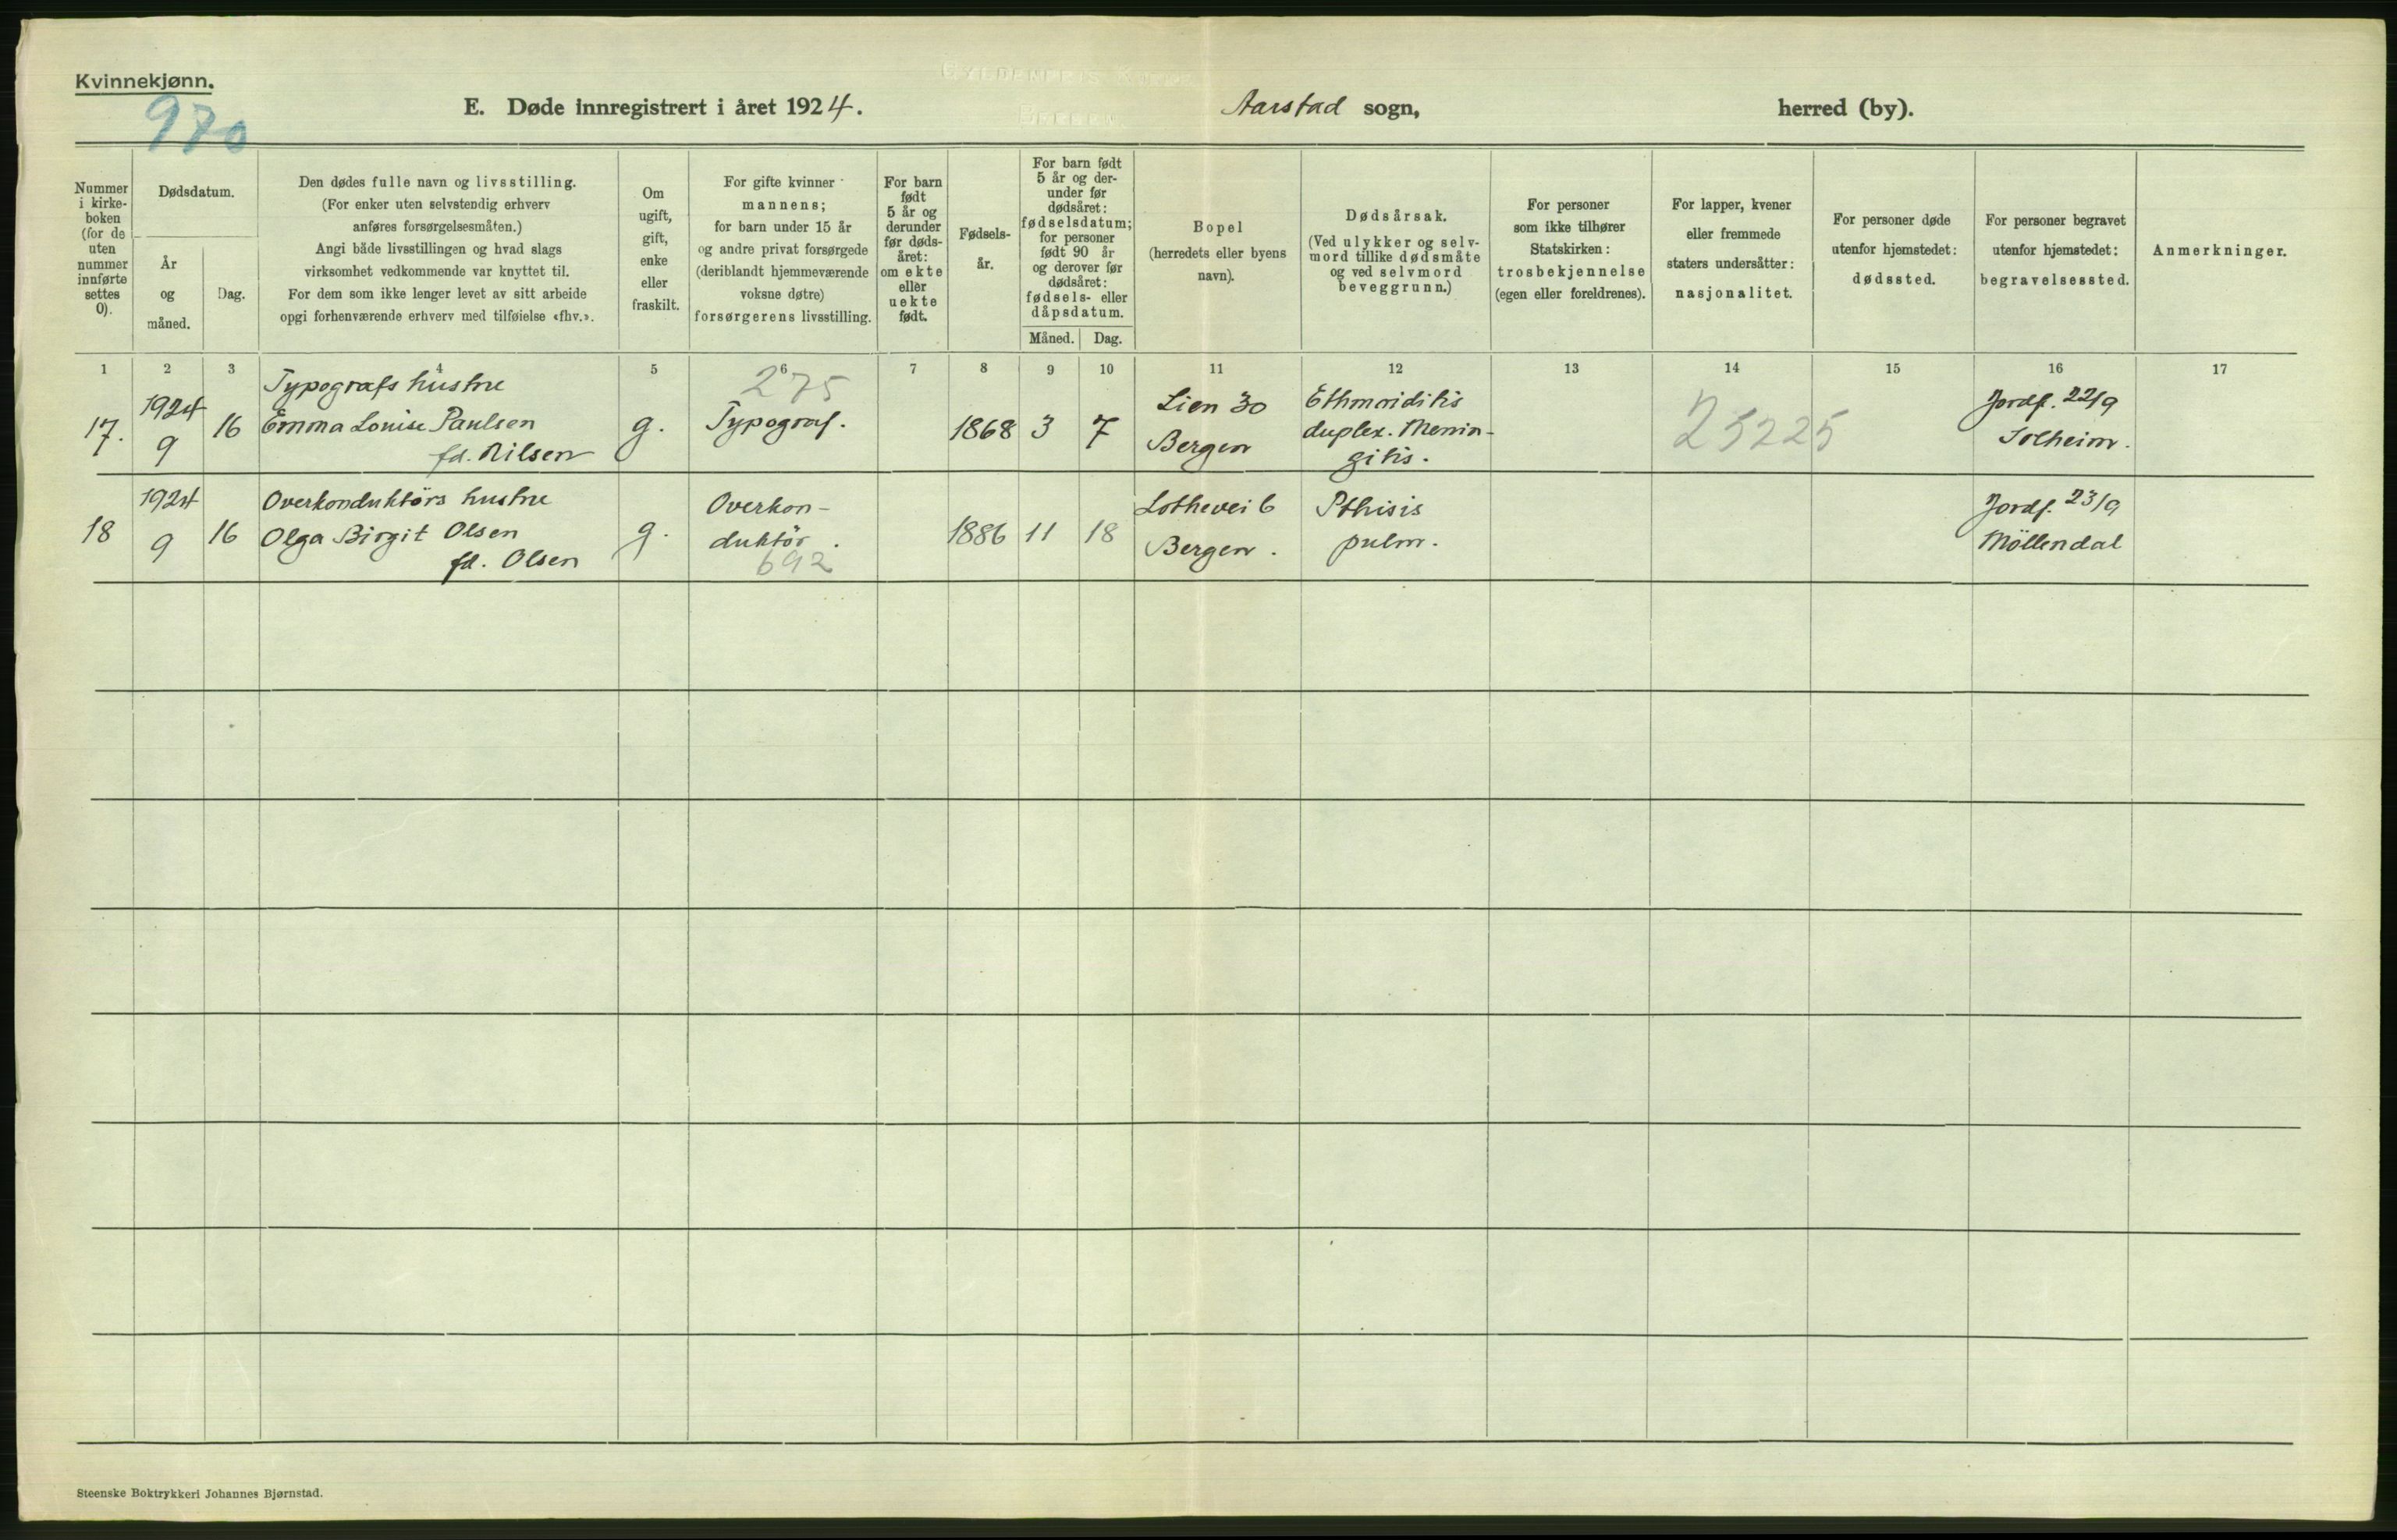 Kvinnekjønn.
970
E. Døde innregistrert i året 1924.
Aarstad sogn,
herred (by).
Nummer
i kirke-
boken
(for de
uten
nummer
innførte
settes
0).
Dødsdatum.
År
og
måned.
Dag.
Den dødes fulle navn og livsstilling.
(For enker uten selvstendig erhverv
anføres forsørgelsesmåten.)
Angi både livsstillingen og hvad slags
virksomhet vedkommende var knyttet til.
For dem som ikke lenger levet av sitt arbeide
opgi forhenværende erhverv med tilføielse «fhv.».
Om
ugift,
gift,
enke
eller
fraskilt.
For gifte kvinner
mannens;
for barn under 15 år
og andre privat forsørgede
(deriblandt hjemmeværende
voksne døtre)
forsørgerens livsstilling.
For barn
født
5 år og
derunder
før døds-
året:
om ekte
eller
uekte
født.
Fødsels-
år.
For barn født
5 år og der-
under før
dødsåret:
fødselsdatum;
for personer
født 90 år
og derover før
dødsåret:
fødsels- eller
dåpsdatum.
Måned.
Dag.
Bopel
(herredets eller byens
navn).
Dødsårsak.
(Ved ulykker og selv-
mord tillike dødsmåte
og ved selvmord
beveggrunn.)
For personer
som ikke tilhører
Statskirken:
trosbekjennelse
(egen eller foreldrenes).
For lapper, kvener
eller fremmede
staters undersåtter:
nasjonalitet.
For personer døde
utenfor hjemstedet:
dødssted.
For personer begravet
utenfor hjemstedet:
begravelsessted.
Anmerkninger.
1 2 3 4 5 6 7 8 9 10 11 12 13 14 15 16 17
17.
1924
9
16
Typografs hustru
Emma Louise Paulsen
fd. Nilsen
g.
275
Typograf.
1868
3
7
Lien 30
Bergen
Ethmoiditis
duplex. Menin-
gitis.
25225
Jordf. 22/9
Solheim.
18
1924
9
16
Overkonduktörs hustru
Olga Birgit Olsen
fd. Olsen
g.
Overkon-
duktör.
692
1886
11
18
Lothevei 6
Bergen.
Pthisis
pulm.
Jordf. 23/9
Möllendal
Steenske Boktrykkeri Johannes Bjørnstad.